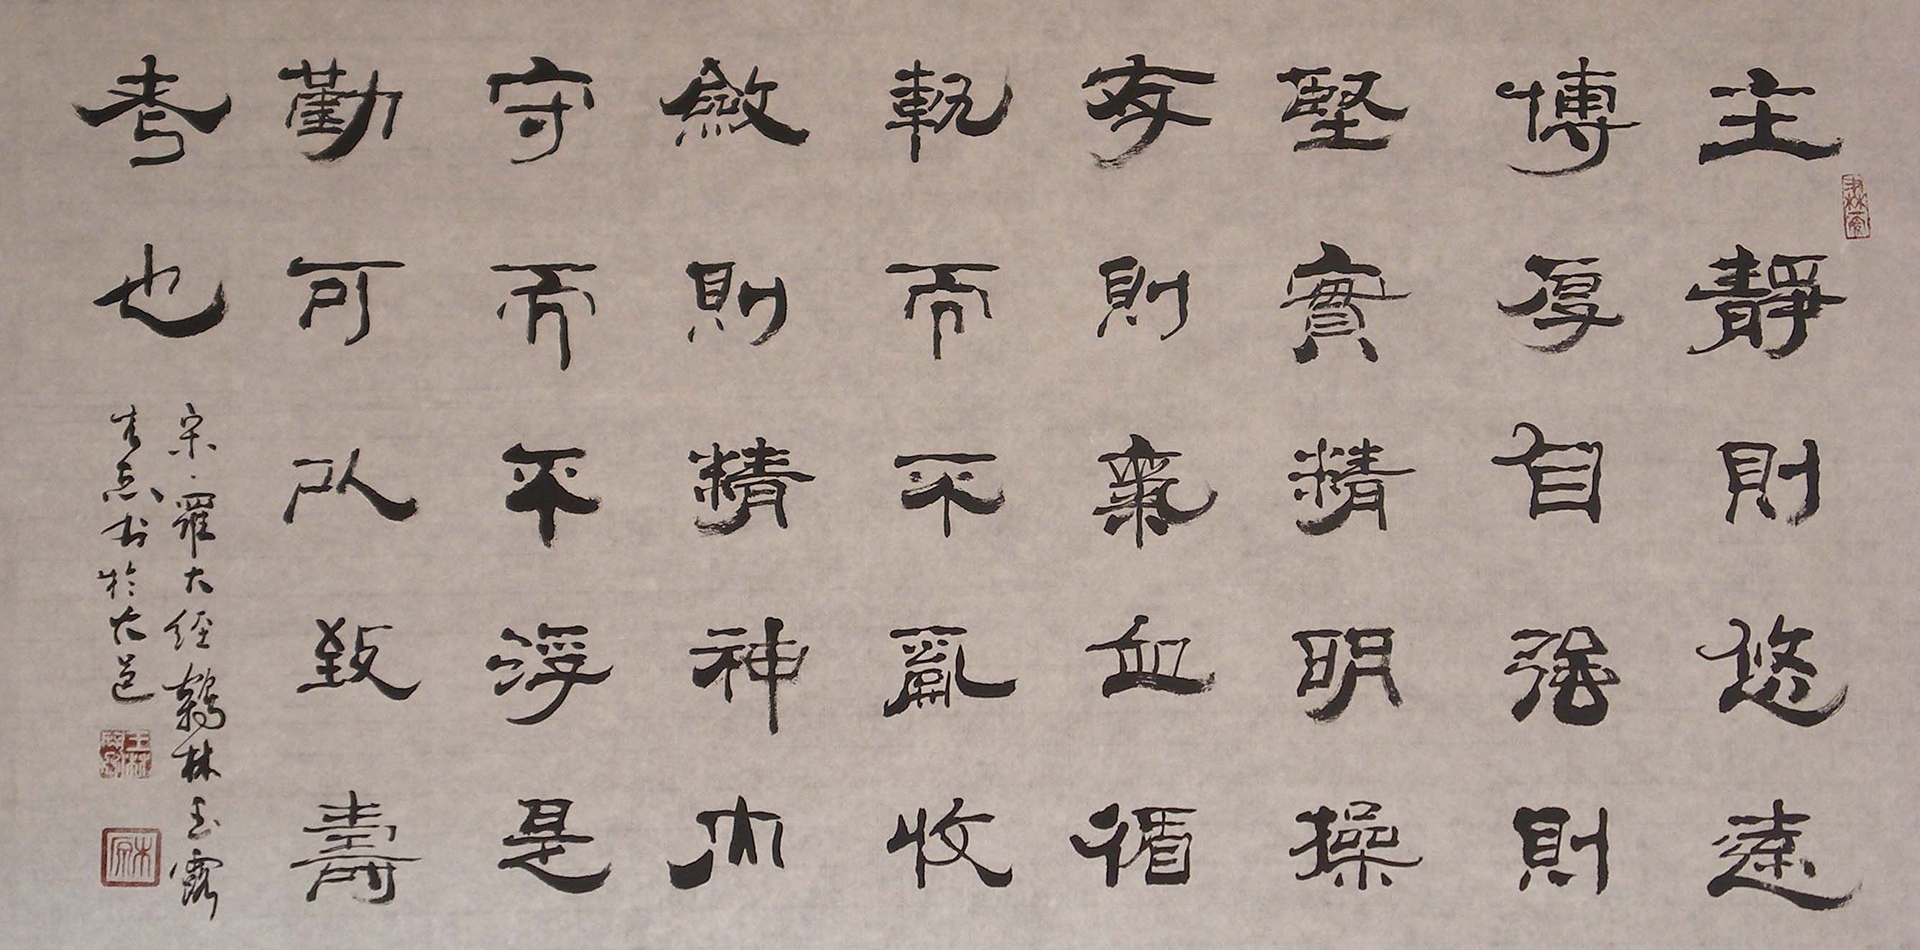 主靜則悠遠
博厚自強則
堅實精明操
存則氣血循
軌而不亂收
斂則精神內
守而不浮是
勤可以致壽
考也
宋·羅大經鶴林玉露
書於大邑